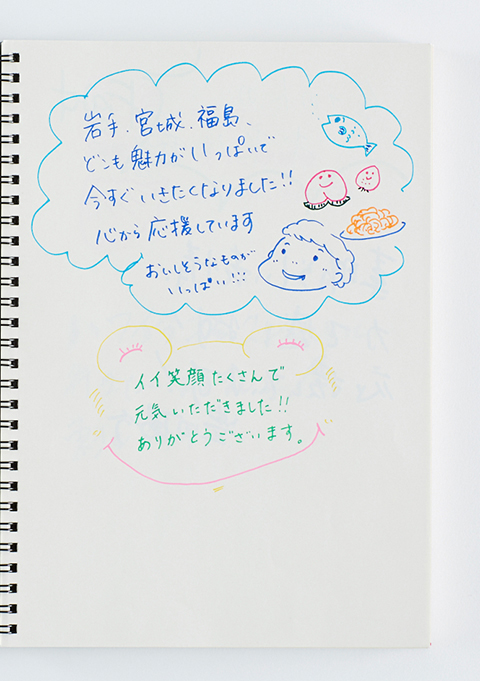 岩手、宮城、福島、
どこも魅力がいっぱいで
今すぐいきたくなりました!!
心から応援しています
おいしそうなものが
いっぱい!!!
イイ笑顔たくさんで
元気いただきました!!
ありがとうございます。